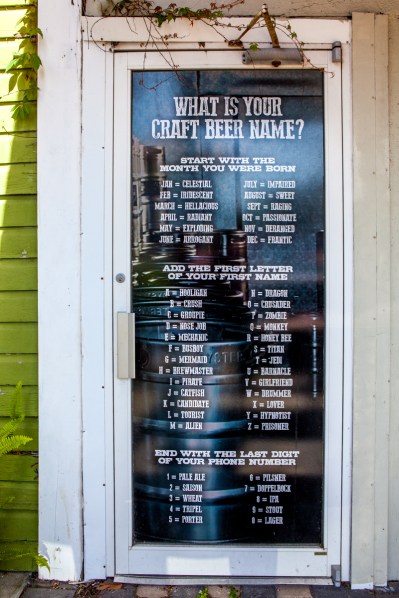 WHAT IS YOUR
CRAFT BEER NAME?
START WITH THE
MONTH YOU WERE BORN
JAN = CELESTIAL
FEB = IRIDESCENT
MARCH = HELLACIOUS
APRIL = RADIANT
MAY = EXPLODING
JUNE = ARROGANT
JULY = IMPAIRED
AUGUST = SWEET
SEPT = RAGING
OCT = PASSIONATE
NOV = DERANGED
DEC = FRANTIC
ADD THE FIRST LETTER
OF YOUR FIRST NAME
A = HOOLIGAN
B = CRUSH
C = GROUPIE
D = NOSE JOB
E = MECHANIC
F = BUSBOY
G = MERMAID
H = BREWMASTER
I = PIRATE
J = CATFISH
K = CANDIDATE
L = TOURIST
M = ALIEN
N = DRAGON
O = CRUSADER
P = ZOMBIE
Q = MONKEY
R = HONEY BEE
S = TITAN
T = JEDI
U = BARNACLE
V = GIRLFRIEND
W = DRUMMER
X = LOVER
Y = HYPNOTIST
Z = PRISONER
END WITH THE LAST DIGIT
OF YOUR PHONE NUMBER
1 = PALE ALE
2 = SAISON
3 = WHEAT
4 = TRIPEL
5 = PORTER
6 = PILSNER
7 = DOPPELBOCK
8 = IPA
9 = STOUT
0 = LAGER